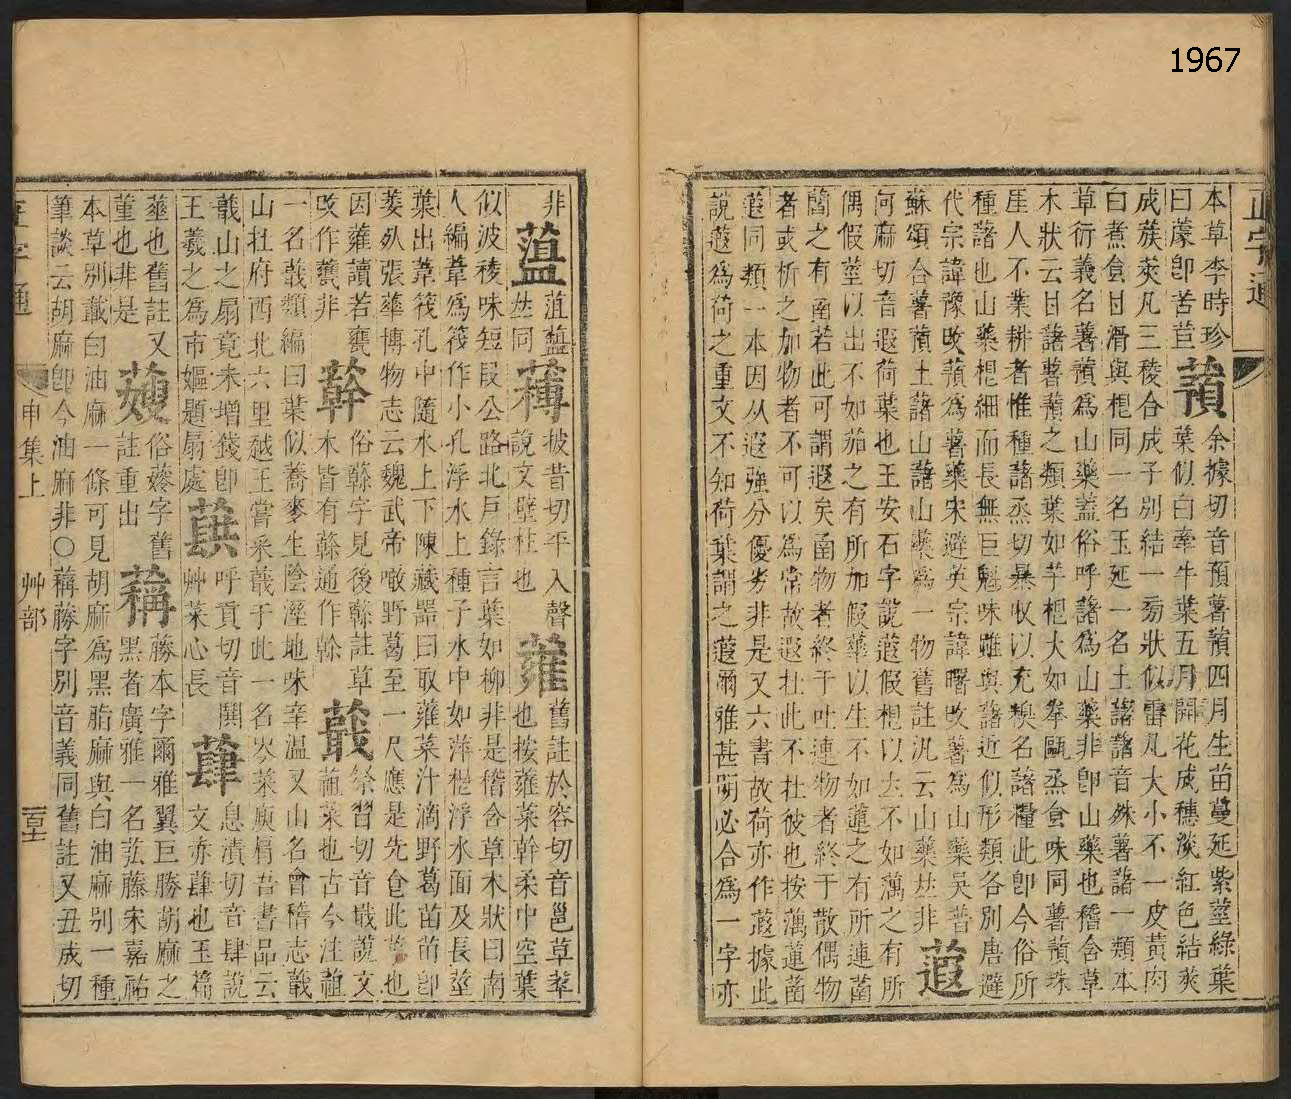 1967
正字通
本草李時珍
曰蘼卽苦苣
蕷
余據切音預薯蕷四月生苗蔓延紫莖綠葉
葉似白牽牛葉五月開花成穗淡紅色結莢
成簇莢凡三稜合成子別結一旁狀似雷凡大小不一皮黃肉
白煮食甘滑與根同一名玉延一名土藷藷音殊薯藷一類本
草衍義名薯蕷爲山藥蓋俗呼藷爲山藥非卽山藥也稽含草
木狀云甘藷薯蕷之類葉如芋根大如拳甌烝食味同薯蕷珠
崖人不業耕者惟種藷烝切暴收以充糗名藷糧此卽今俗所
種藷也山藥根細而長無巨魁味雖與藷近似形類各別唐避
代宗諱豫改蕷爲薯藥宋避英宗諱曙改薯爲山藥吳普
蘇頌合薯蕷土藷山藷山藥爲一物舊註汎云山藥竝非
蕸
何麻切音遐荷葉也王安石字說蕸假根以去不如藕之有所
偶假莖以出不如茄之有所加假華以生不如蓮之有所連菡
萏之有菡若此可謂遐矣菡物者終于吐連物者終于散偶物
者或析之加物者不可以爲常故遐杜此不杜彼也按藕蓮菡
蕸同類一本因从遐強分優劣非是又六書故荷亦作蕸據此
說蕸爲荷之重文不知荷葉謂之蕸爾雅甚明必合爲一字亦
非
薀
竝同
欂
披昔切平入聲
說文壁柱也
蕹
舊註於容切音邕草萃
也按蕹菜幹柔中空葉
似波稜味短段公路北戶錄言葉如柳非是稽含草木狀曰南
人編葦爲筏作小孔浮水上種子水中如萍根浮水面及長莖
葉出葦筏孔中隨水上下陳藏器曰取蕹菜汁滴野葛苗苗卽
萎死張華博物志云魏武帝噉野葛至一尺應是先食此菜也
因蕹讀若甕
改作甕非
簳
俗榦字見後榦註草
木皆有榦通作幹
蕺
祭習切音戢說文
菹菜也古今注葅
一名蕺類編曰葉似蕎麥生陰溼地味辛溫又山名會稽志蕺
山杜府西北六里越王嘗采蕺于此一名岑菜庾肩吾書品云
蕺山之扇竟未增錢卽
王羲之爲市嫗題扇處
蕻
呼貢切音鬨
艸菜心長
蕼
息漬切音肆說
文赤蕼也玉篇
蕵也舊註又
菫也非是
薓
俗葠字舊
註重出
䕝
藤本字爾雅翼巨勝胡麻之
黑者廣雅一名弦藤宋嘉祐
本草別載白油麻一條可見胡麻爲黑脂麻與白油麻別一種
筆談云胡麻卽今油麻非○䕝勝字別音義同舊註又丑成切
正字通
申集上
艸部